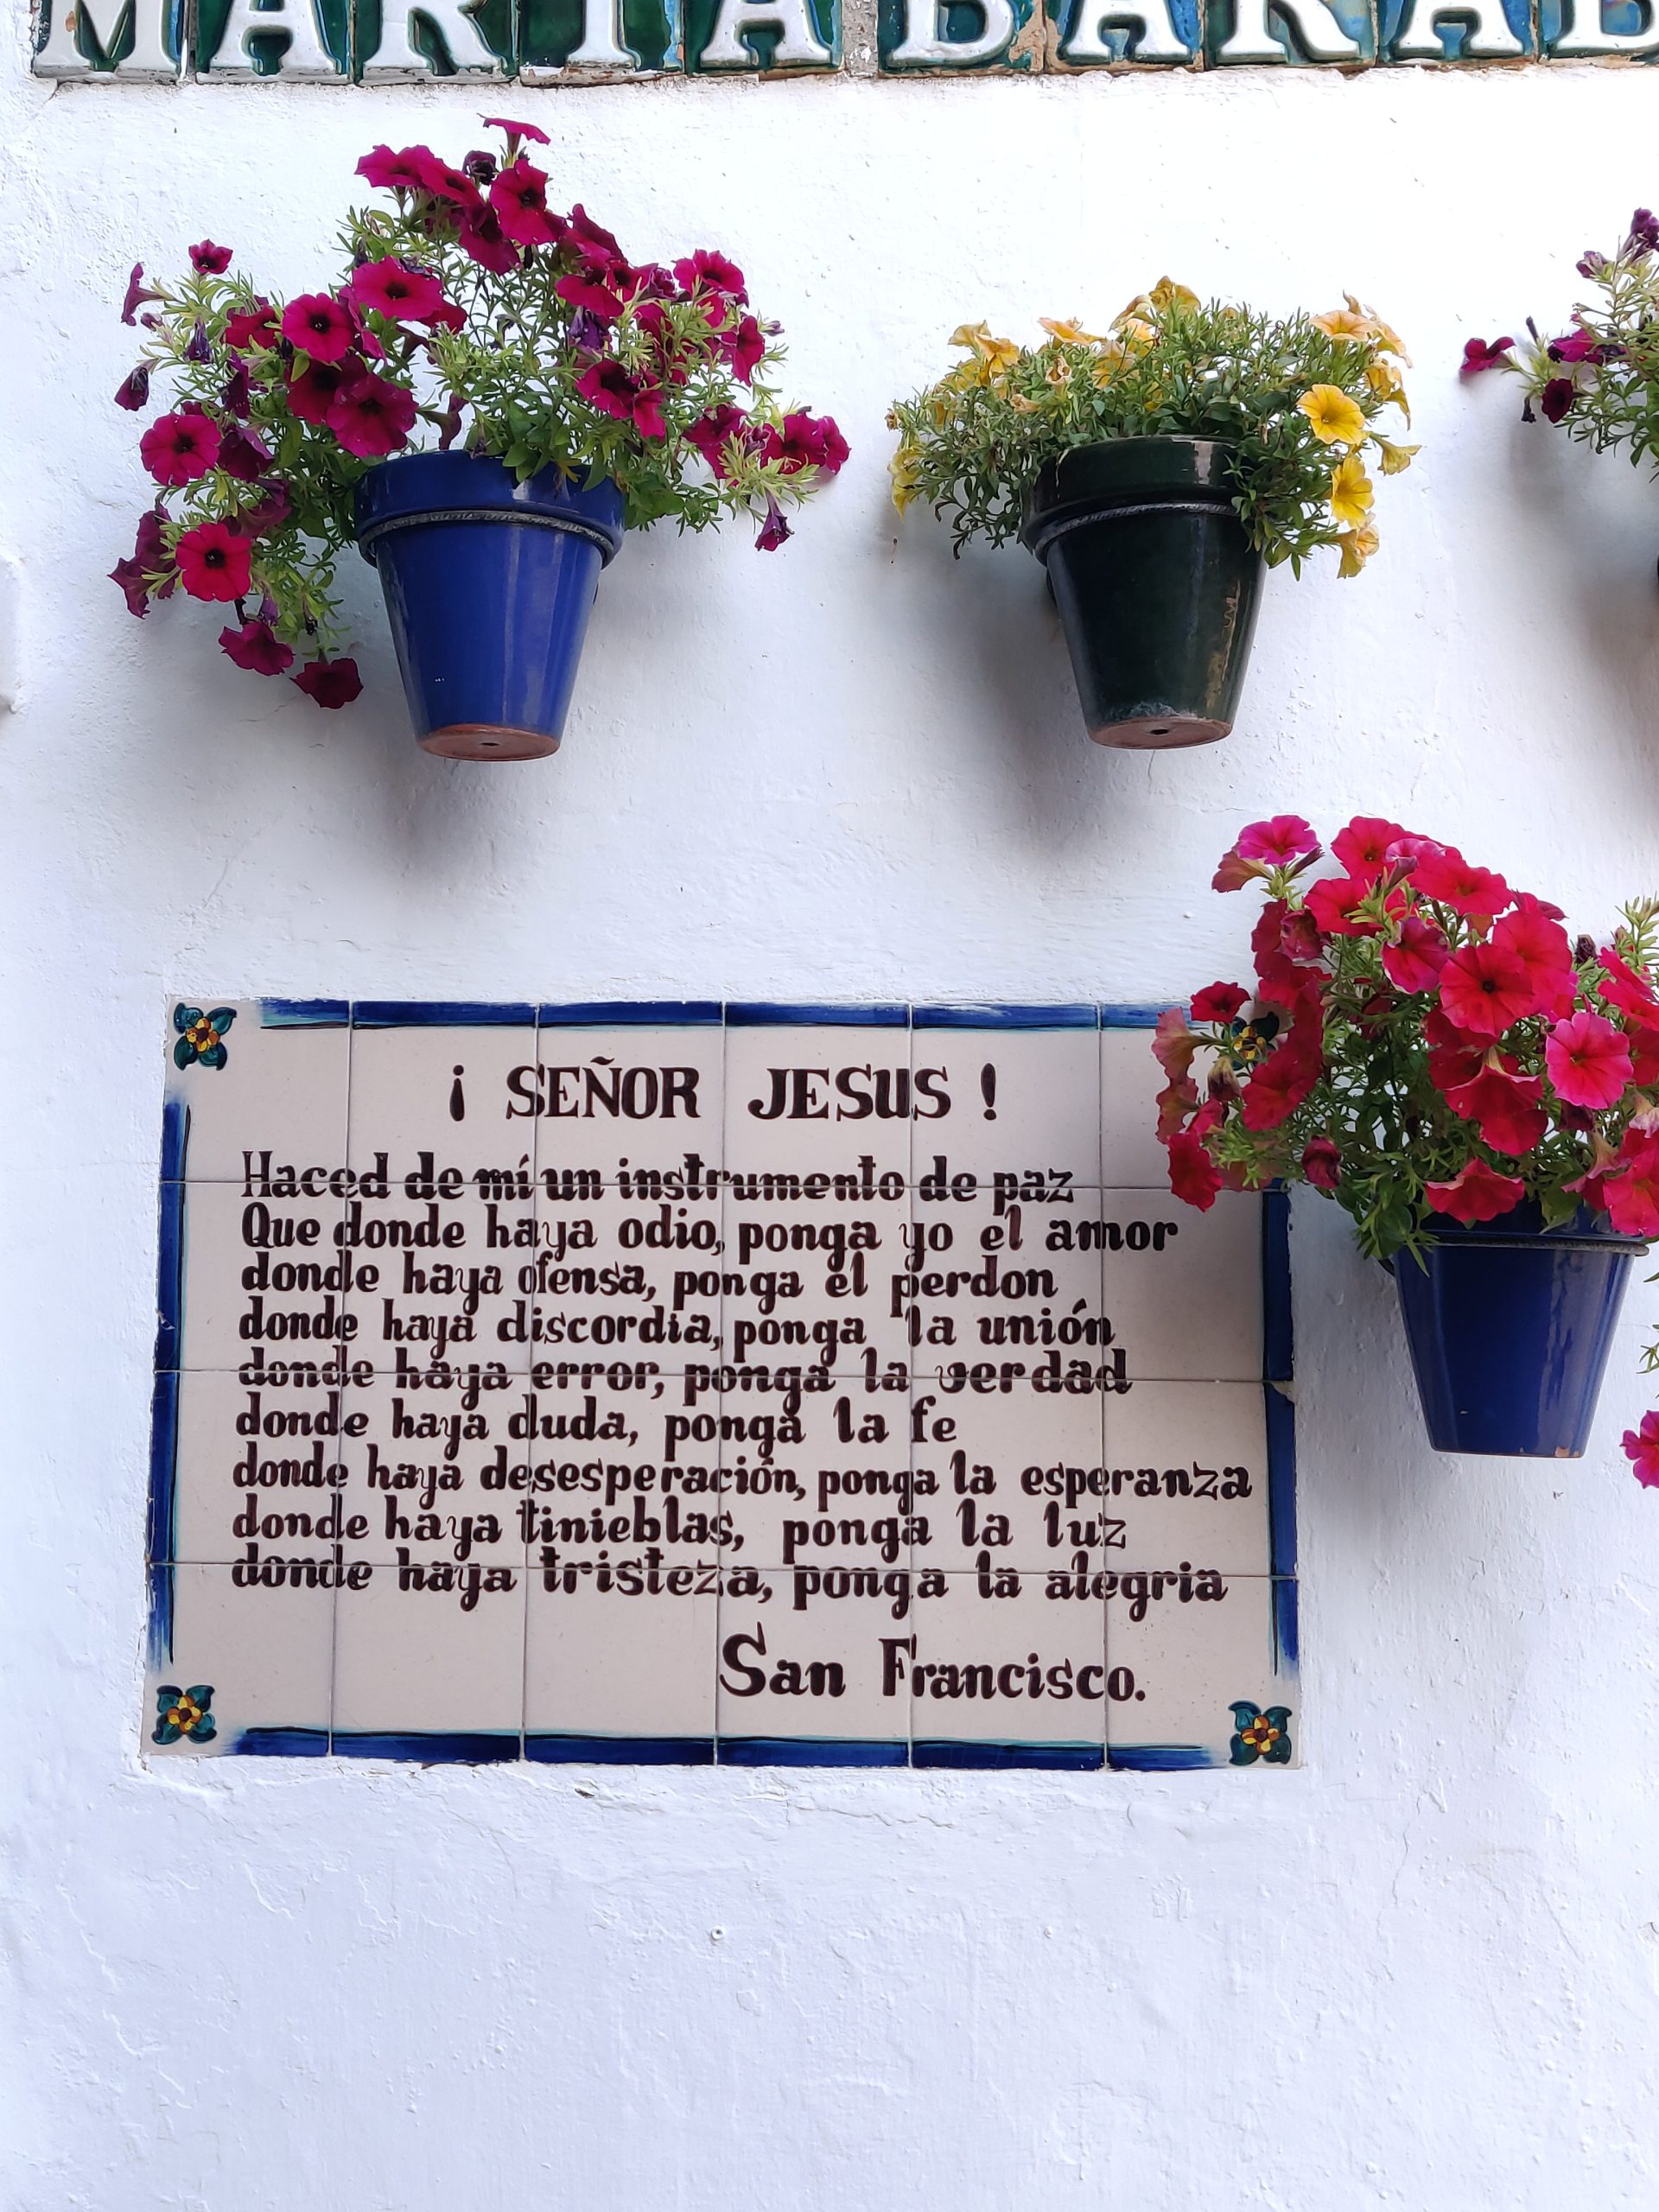 MARIA BARAB
¡ SEÑOR JESUS !
Haced de mí un instrumento de paz
Que donde haya odio, ponga yo el amor
donde haya ofensa, ponga el perdon
donde haya discordia, ponga la unión
donde haya error, ponga la verdad
donde haya duda, ponga la fe
donde haya desesperación, ponga la esperanza
donde haya tinieblas, ponga la luz
donde haya tristeza, ponga la alegria
San Francisco.